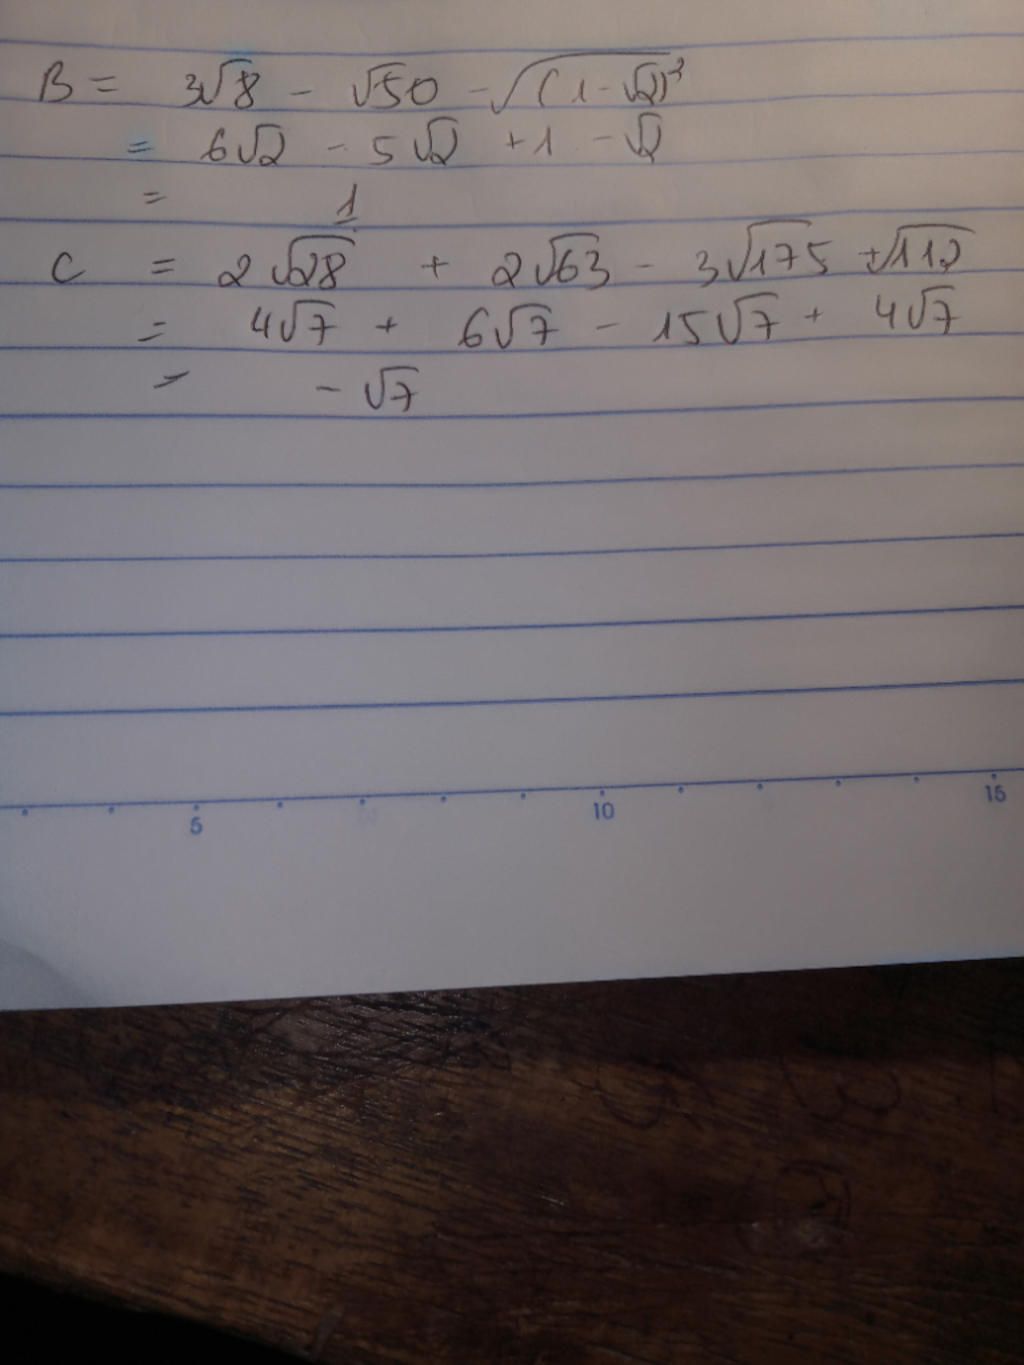 B = 3√8 - √50 - √(1-√2)²
= 6√2 - 5√2 + 1 - √2
= 1
C = 2√28 + 2√63 - 3√175 + √112
= 4√7 + 6√7 - 15√7 + 4√7
= - √7
5 10 15